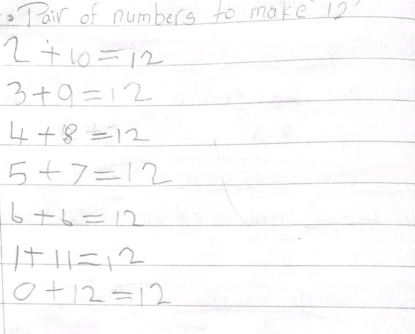 Pair of numbers to make 12
2 + 10 = 12
3 + 9 = 12
4 + 8 = 12
5 + 7 = 12
6 + 6 = 12
1 + 11 = 12
0 + 12 = 12